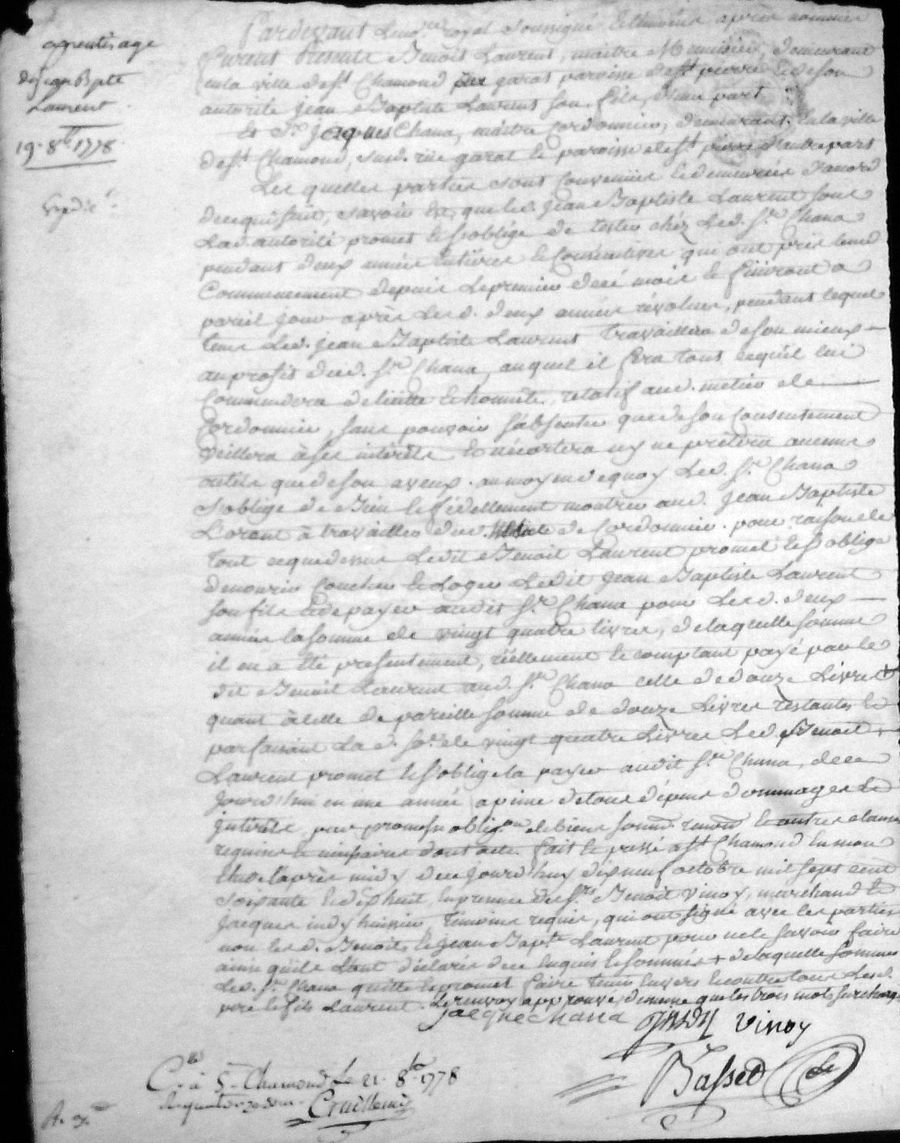 apprentissage
de jean Bpte
Laurent
19. 8bre 1778
Pardevant Le nore royal soussigné & témoins après nommés
furent Présents Benoît Laurent, maître Menuisier, demeurant
en la ville de st Chamond rue garat paroisse de st pierre & de son
autorité jean Baptiste Laurent son fils, d'une part
Et Sr jacques Chana, maître Cordonnier, demeurant en la ville
de st Chamond, sus d. rue garat & paroisse de st pierre d'autre part
Lesquelles parties sont convenües & demeurées d'accord
de ce qui suit, savoir est, que led. jean Baptiste Laurent sous
lad. autorité promet & s'oblige de rester chez Led. Sr Chana
pendant deux années entières & Consécutives qui ont pris leur
Commencement depuis le premier de ce mois & finiront a
pareil jour après Lesd. deux années révolues, pendant lequel
tems Led. jean Baptiste Laurent travaillera de son mieux
au profit dud. Sr Chana, auquel il fera tout ce qu'il lui
Commandera de licitte & honnête, relatif aud. métier de
Cordonnier, sans pouvoir s'absenter que de son Consentement
veillera à ses intérêts & n'écartera ny ne prêtera aucuns
outils que de son aveux. au moyen de quoy Led. Sr Chana
s'oblige de bien & fidellement montrer aud. jean Baptiste
Lorent à travailler de Cordonnier. pour raison de
tout ce que dessus Ledit Benoit Laurent promet & s'oblige
de nourrir Coucher & Loger Ledit jean Baptiste Laurent
son fils & de payer audit Sr Chana pour Lesd. deux
années la somme de vingt quatre livres, de laquelle somme
il en a été présentement, réellement & comptant payé par le
dit Benoit Laurent aud. Sr Chana celle de douze Livres +
quant à celle de pareille somme de douze Livres restantes &
parfaisant La d. so.e de vingt quatre Livres Led. Benoit
Laurent promet & s'oblige la payer audit Sr Chana, de ce
jourd'hui en une année a peine de tous depens dommages &
intérêts, par promesse oblig.on de biens & autres clauses
requises & nécessaires dont acte. fait & passé a st Chamond en mon
Etude après midy de ce jourd'huy dixneuf octobre mil sept cent
soixante & dixhuit, en presence de srs Benoit vinoy, marchand &
jacques indy huissier témoins requis, qui ont signé avec les parties
non lesd. Benoit, & jean Bapte Laurent pour ne le savoir faire
ainsi qu'ils L'ont déclaré de ce enquis & sommés + de laquelle somme
Led. Sr Chana quitte & promet faire tenir envers & contre tous Lesd.
pere & fils Laurent. Le renvoy approuvé, de même que les trois mots surchargés
jacque chana indy vinoy
Basset
C.lé à St Chamond Le 21. 8bre 1778